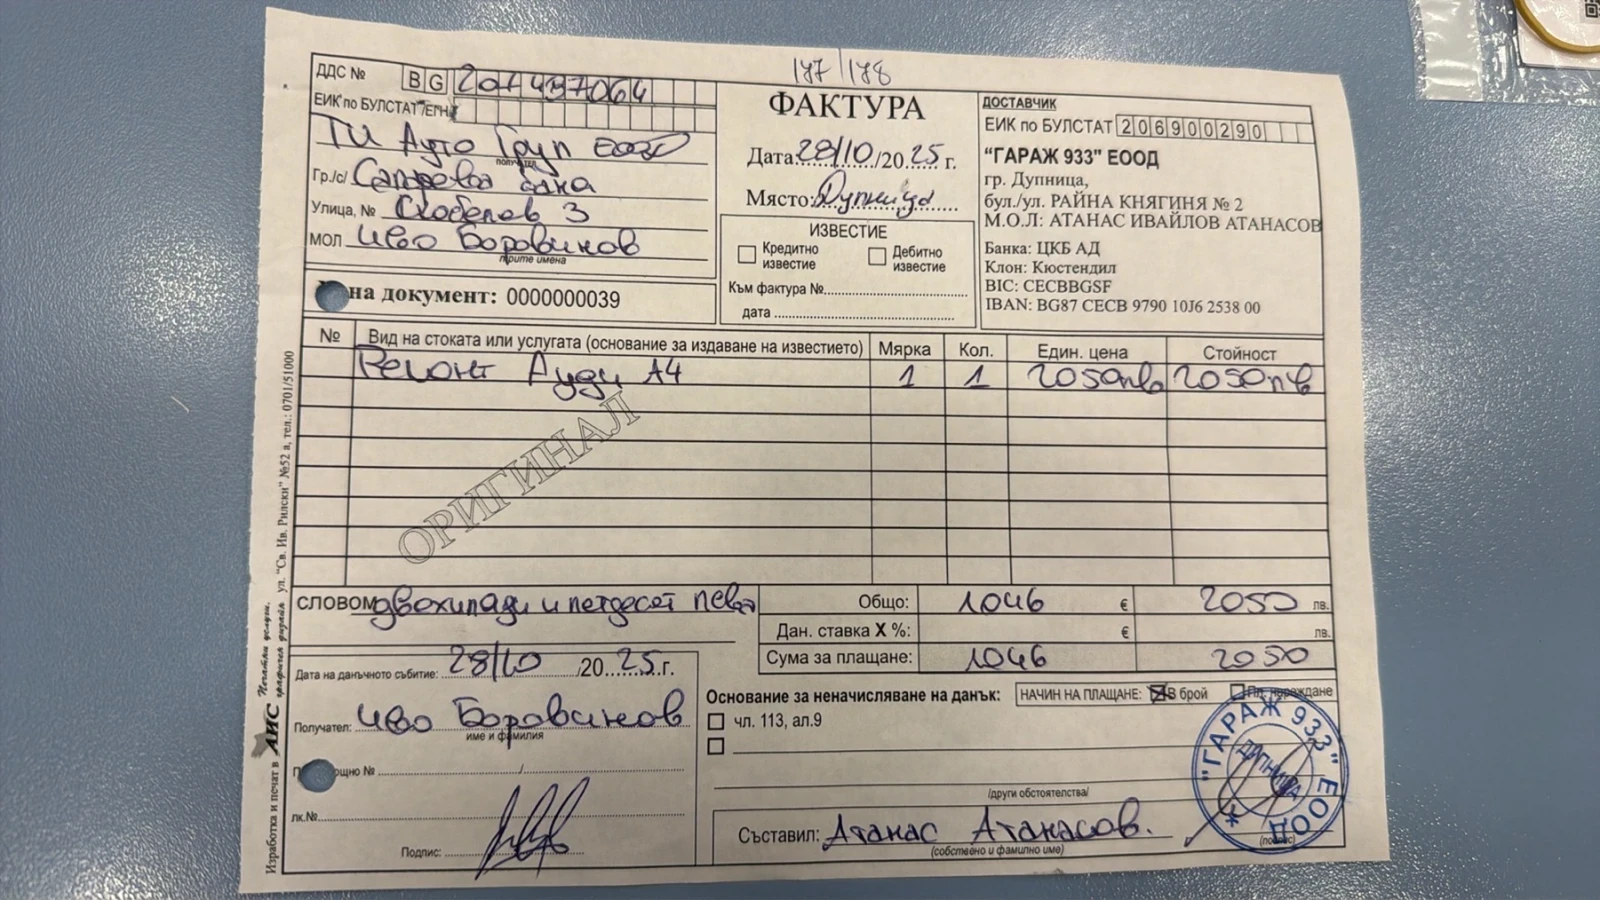 177/178
ДДС № BG 201437064
ЕИК по БУЛСТАТ/ЕГН
ТИ Ауто Груп ЕООД
получател
Гр./с/ Сапарева баня
Улица, № Скобелов 3
МОЛ Иво Боровинов
трите имена
на документ: 0000000039
ФАКТУРА
Дата: 28/10/2025 г.
Място: Дупница
ИЗВЕСТИЕ
Кредитно известие
Дебитно известие
Към фактура №
дата
ДОСТАВЧИК
ЕИК по БУЛСТАТ 206900290
"ГАРАЖ 933" ЕООД
гр. Дупница,
бул./ул. РАЙНА КНЯГИНЯ № 2
М.О.Л: АТАНАС ИВАЙЛОВ АТАНАСОВ
Банка: ЦКБ АД
Клон: Кюстендил
BIC: CECBBGSF
IBAN: BG87 CECB 9790 10J6 2538 00
№ Вид на стоката или услугата (основание за издаване на известието) Мярка Кол. Един. цена Стойност
Ремонт Ауди А4 1 1 2050лв 2050лв
ОРИГИНАЛ
СЛОВОМ двехиляди и петдесет лева
Общо: 1046 € 2050 лв.
Дан. ставка X %: € лв.
Сума за плащане: 1046 2050
Дата на данъчното събитие: 28/10/2025 г.
Получател: Иво Боровинов
име и фамилия
№ /
лк.№
Подпис:
Основание за неначисляване на данък:
НАЧИН НА ПЛАЩАНЕ: В брой Пл. нареждане
чл. 113, ал.9
/други обстоятелства/
Съставил: Атанас Атанасов.
(собствено и фамилно име) (подпис)
"ГАРАЖ 933" ЕООД
ДУПНИЦА
Изработка и печат в АИС Печатни услуги, графичен дизайн ул. "Св. Ив. Рилски" №52 а, тел.: 0701/51000